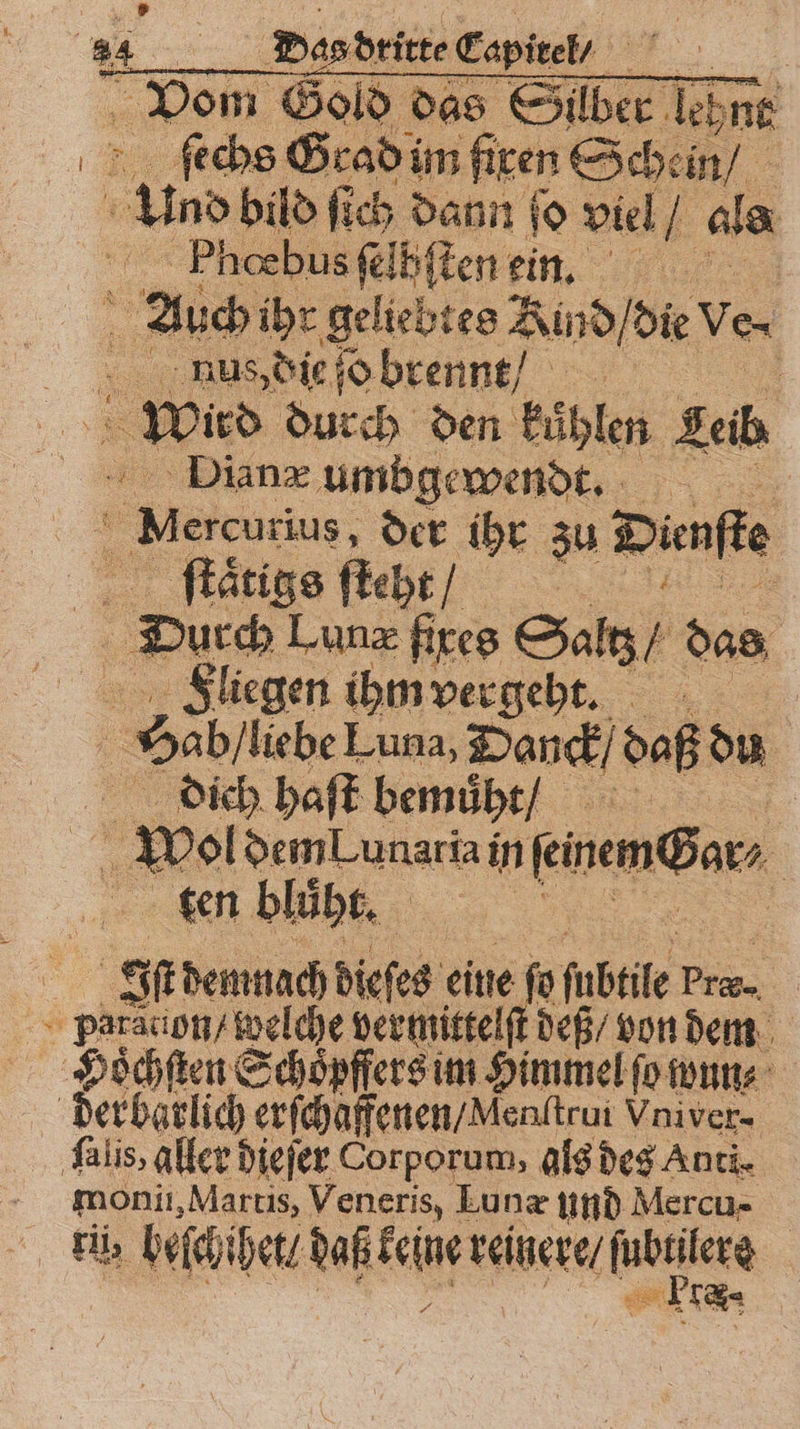 24 Das dritte Capitel/
Vom Gold das Silber lehnt
ſechs Grad im fixen Schein/
Und bild ſich dann ſo viel / als
Phœbus ſelbſten ein.
Auch ihr geliebtes Kind/die Ve-
nus, die ſo brennt/
Wird durch den kuͤhlen Leib
Dianæ umbgewendt.
Mercurius, der ihr zu Dienſte
ſtaͤtigs ſteht/
Durch Lunæ fixes Saltz/ das
Fliegen ihm vergeht.
Hab/liebe Luna, Danck/ daß du
dich haſt bemuͤht/
Wol dem Lunaria in ſeinem Gar-
ten bluͤht.
Iſt demnach dieſes eine ſo ſubtile Præ-
paration/ welche vermittelſt deß/ von dem
Hoͤchſten Schoͤpffers im Himmel ſo wun-
derbarlich erſchaffenen/Menſtrui Vniver-
ſalis, aller dieſer Corporum, als des Anti-
monii, Martis, Veneris, Lunæ und Mercu-
rii, beſchihet/ daß keine reinere/ ſubtilere
Præ-